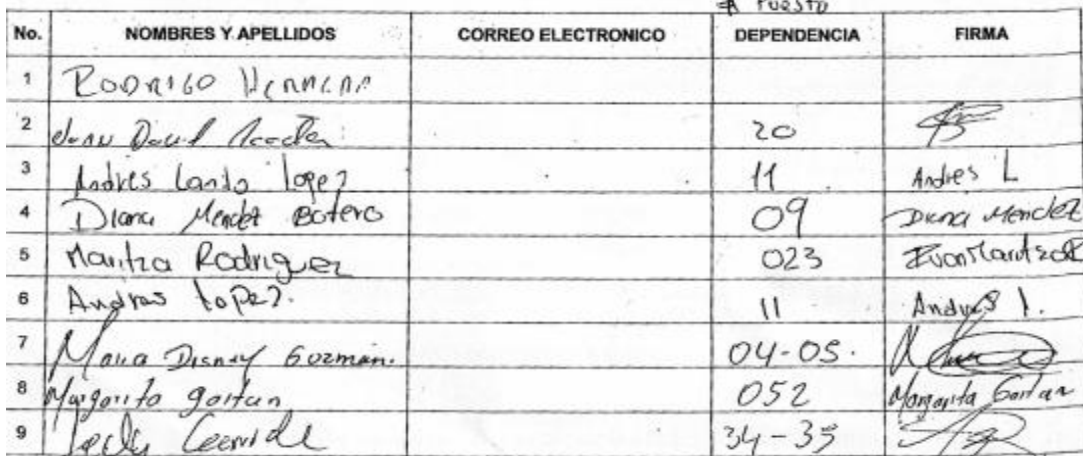 # PUESTO
No. NOMBRES Y APELLIDOS CORREO ELECTRONICO DEPENDENCIA FIRMA
1 RODRIGO Herrera
2 Juan David 20
3 Andres Lopez 11 Andres L
4 Diana Mendez Botero 09 Diana Mendez
5 Maritza Rodriguez 023
6 Andres Lopez. 11 Andres L.
7 Maria Disney Guzman. 04-05.
8 Margarita gaitan 052 Margarita Gaitan
9 34-35